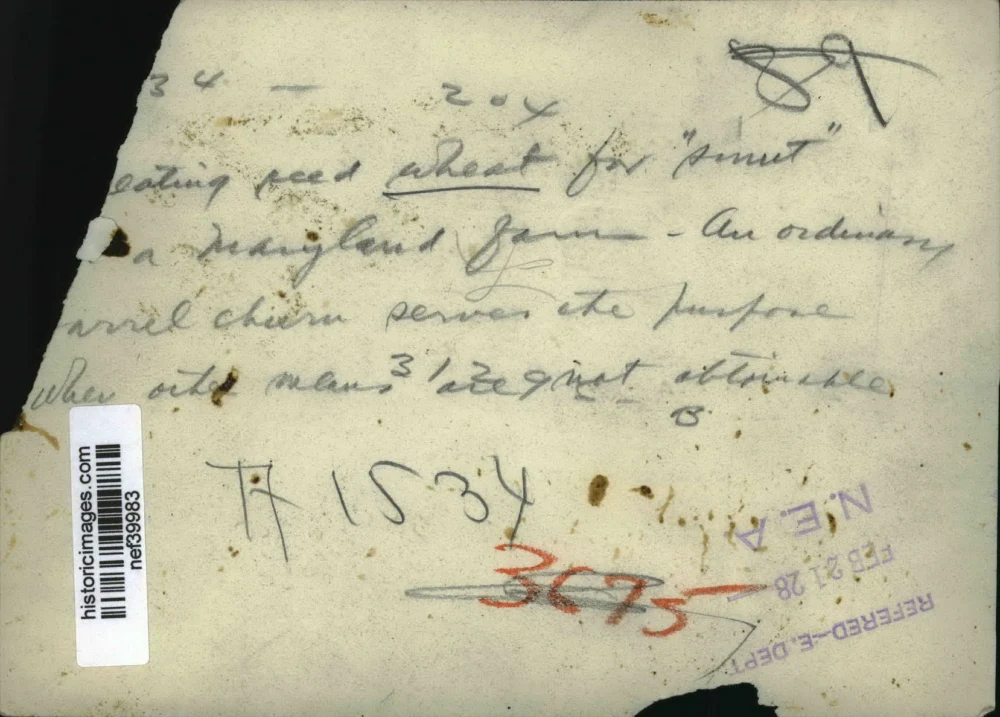 89
34 – 204
eating seed wheat for "smut"
a Maryland farm – An ordinary
arrel churn serves the purpose
when other means are not obtainable
B
1534
3675
N.E.A
FEB 21 28
REFERED-E. DEPT
historicimages.com
nef39983